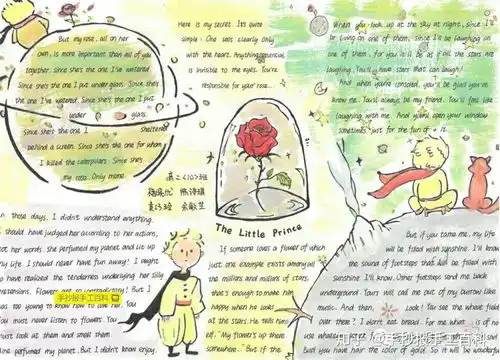 But my rose, all on her
own, is more important than all of you
together. Since she's the one I've watered.
Since she's the one I put under glass. Since she's
the one I've watered. Since she's the one I put
under glass.
Since she's the one I sheltered
behind a screen. Since she's the one for whom
I killed the caterpillars. Since she's
my rose. Only mine.
Here is my secret. It's quite
simple: One sees clearly only
with the heart. Anything essential
is invisible to the eyes. You're
responsible for your rose...
When you look up at the sky at night, since I'll
be living on one of them, since I'll be laughing on one
of them, for you it'll be as if all the stars are
laughing. You'll have stars that can laugh!
And when you're consoled, you'll be glad you've
known me. You'll always be my friend. You'll feel like
laughing with me. And you'll open your window
sometimes just for the fun of it.
高二(10)班
The Little Prince
In those days, I didn't understand anything.
I should have judged her according to her actions,
not her words. She perfumed my planet and lit up
my life. I should never have run away! I ought
to have realized the tenderness underlying her silly
pretensions. Flowers are so contradictory! But I
was too young to know how to love her. You
must never listen to flowers. You
must look at them and smell them
mine perfumed my planet. But I didn't know enjoy.
手抄报手工百科
If someone loves a flower of which
just one example exists among all
the millions and millions of stars,
that's enough to make him
happy when he looks
at the stars. He tells himself
"My flower's up there
somewhere..." But if the
But if you tame me, my life
will be filled with sunshine. I'll know
the sound of footsteps that will be
Other footsteps send me back
underground. Yours will call me out of my burrow like
music. And then, look! You see the wheat field
over there? I don't eat bread. For me wheat is of no
use whatever
But you have hair the color of gold. So it will be
知乎 @手抄报手工百科